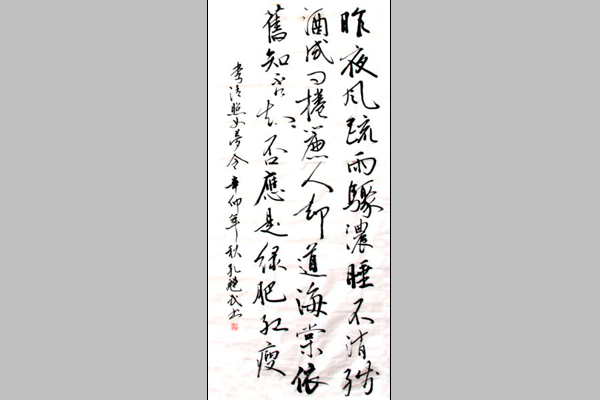 昨夜风疏雨驟濃睡不消残
酒试问捲簾人却道海棠依
舊知否知否應是绿肥红瘦
李清照如梦令 辛卯年秋孔书